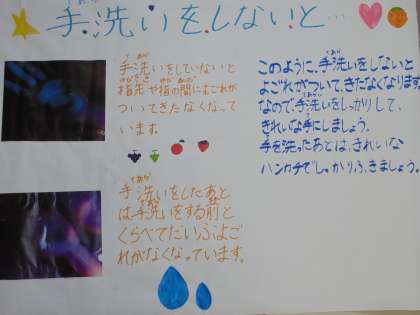 手洗いをしないと…
手洗いをしていないと
指先や指の間によごれが
ついてきたなくなって
います。
手洗いをしたあと
は手洗いをする前と
くらべてだいぶよご
れがなくなっています。
このように、手洗いをしないと
よごれがついてきたなくなります。
なので手洗いをしっかりして、
きれいな手にしましょう。
手を洗ったあとは、きれいな
ハンカチでしっかりふきましょう。